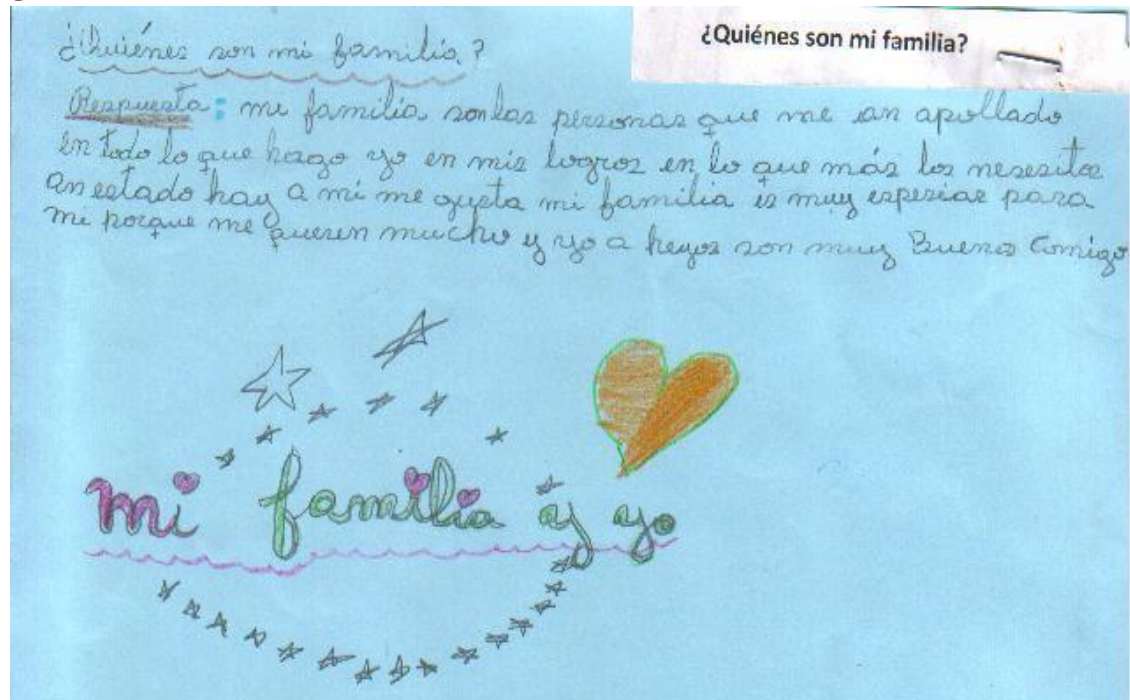 ¿Quiénes son mi familia?
¿Quiénes son mi familia?
Respuesta: mi familia son las personas que me an apollado
en todo lo que hago yo en mis logros en lo que más los nesesitos
an estado hay a mí me gusta mi familia es muy espesiae para
mi porque me queren mucho y yo a heyos son muy Buenos Comigo
mi familia y yo